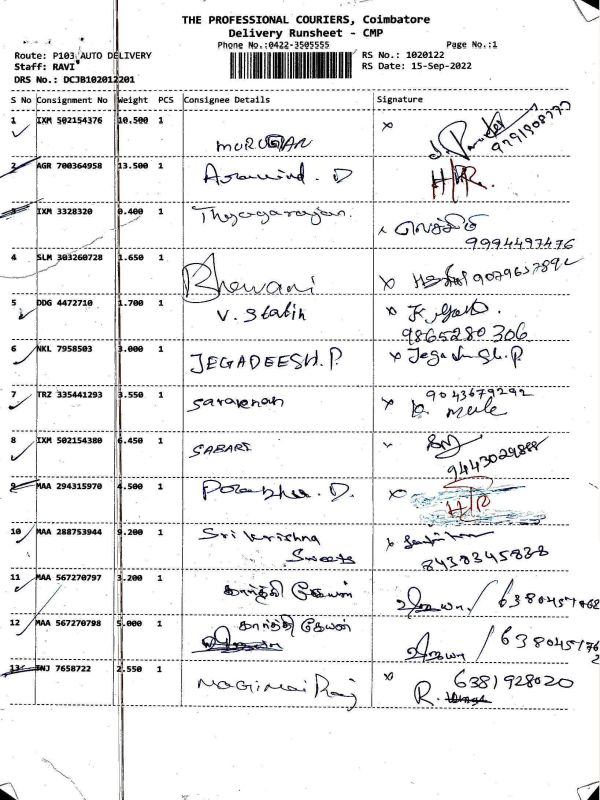 THE PROFESSIONAL COURIERS, Coimbatore
Delivery Runsheet - CMP
Phone No.:0422-3505555
Page No.:1
Route: P103 AUTO DELIVERY
RS No.: 1020122
Staff: RAVI
RS Date: 15-Sep-2022
DRS No.: DCJB102012201
S No Consignment No Weight PCS Consignee Details Signature
1 IXM 502154376 10.500 1
2 AGR 700364958 13.500 1 Aravind. D H/R.
3 IXM 3328320 0.400 1 Thyagarajan.
9994497476
4 SLM 303260728 1.650 1 Bhawani
5 DDG 4472710 1.700 1 V. Stalin
9865280306
6 NKL 7958503 3.000 1 JEGADEESH.P. Jegadeesh.P
7 TRZ 335441293 3.550 1 Saravanan 9043679292
8 IXM 502154380 6.450 1 SABARI
9443029888
9 MAA 294315970 4.500 1 H/R
10 MAA 288753944 9.200 1 Sri Krishna
Sweets 8438345838
11 MAA 567270797 3.200 1 கார்த்தி கேயன்
12 MAA 567270798 5.000 1 கார்த்தி கேயன்
13 TNJ 7658722 2.550 1 6381928020
R.